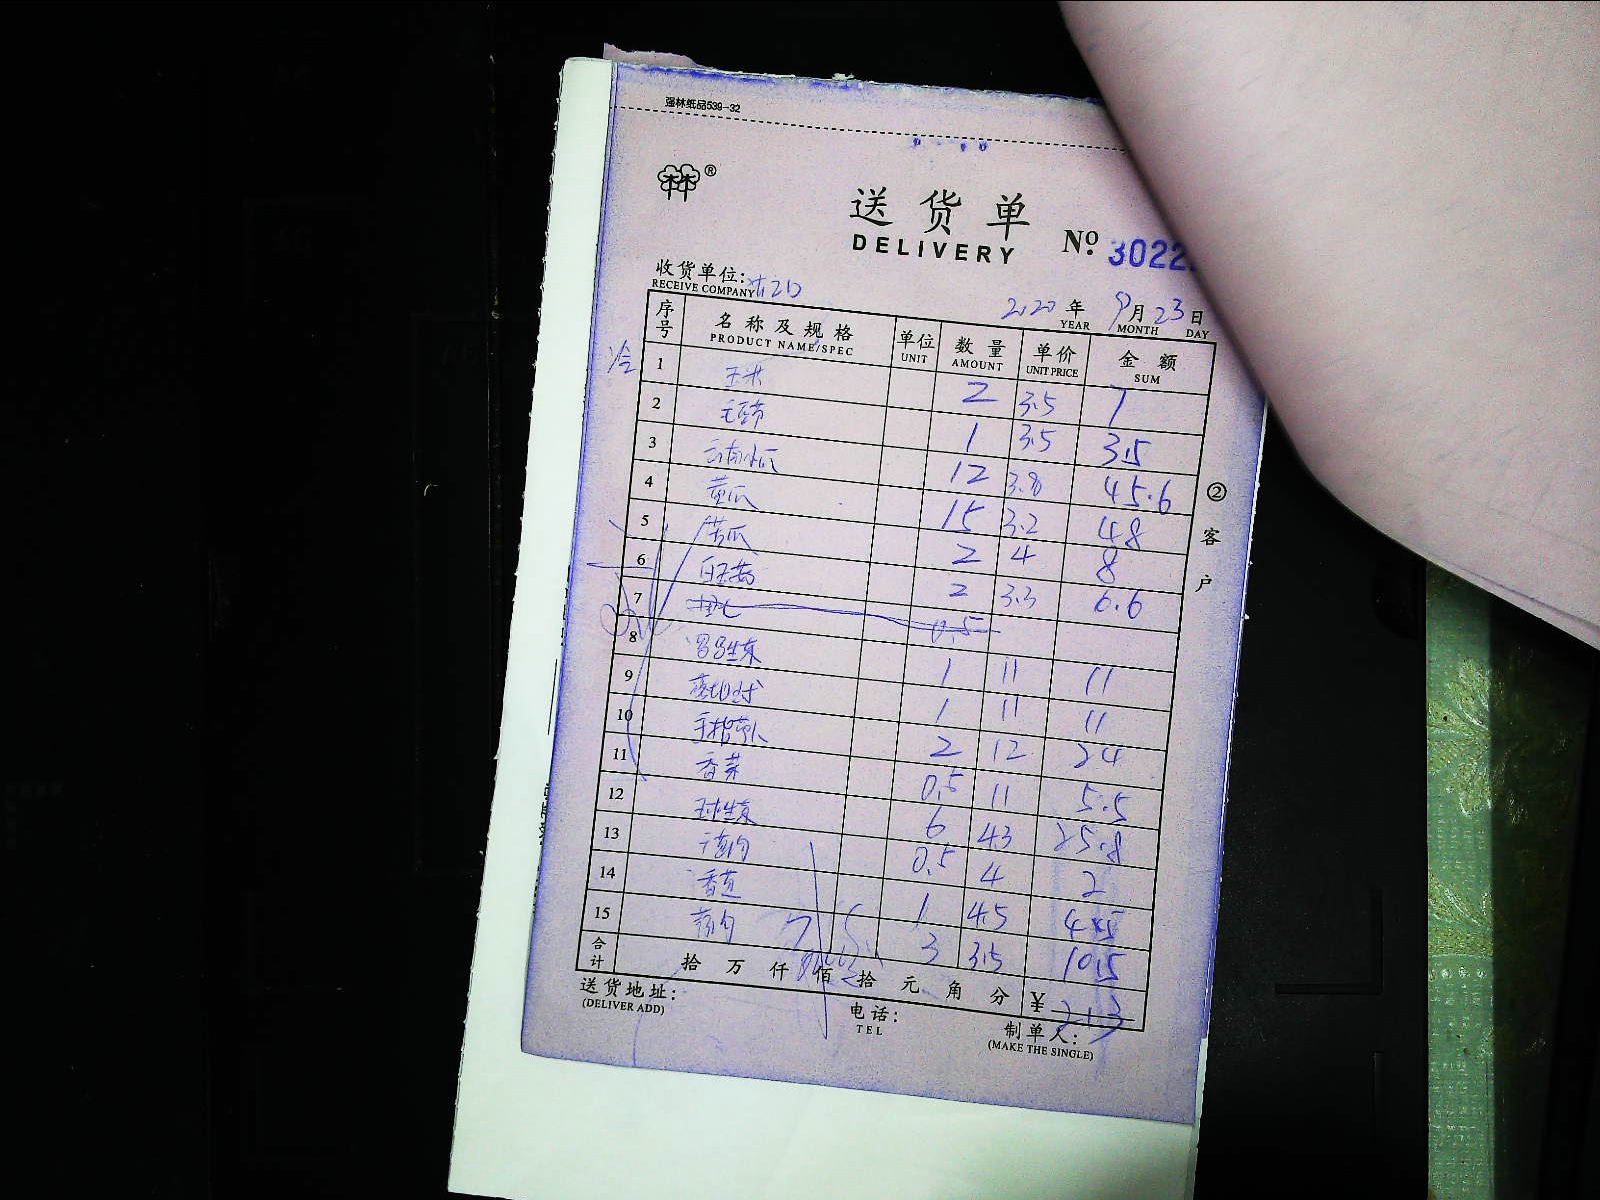 强林纸品539-32
林®
送货单
DELIVERY № 3022
收货单位:
RECEIVE COMPANY
2020年 9月 23日
YEAR MONTH DAY
序号 名称及规格 单位 数量 单价 金额
PRODUCT NAME/SPEC UNIT AMOUNT UNIT PRICE SUM
冷
1 玉米 2 3.5 7
2 毛豆节 1 3.5 3.5
3 云南小瓜 12 3.8 45.6
4 黄瓜 15 3.2 48
5 苦瓜 2 4 8
6 2 3.3 6.6
7 0.5
8 罗马生菜 1 11 11
9 1 11 11
10 手指萝卜 2 12 24
11 香菜 0.5 11 5.5
12 球生菜 6 4.3 25.8
13 0.5 4 2
14 香芒 1 4.5 4.5
15 3 3.5 10.5
合计 拾 万 仟 佰 拾 元 角 分 ¥ 213
送货地址:
(DELIVER ADD)
电话:
TEL
制单人:
(MAKE THE SINGLE)
② 客户